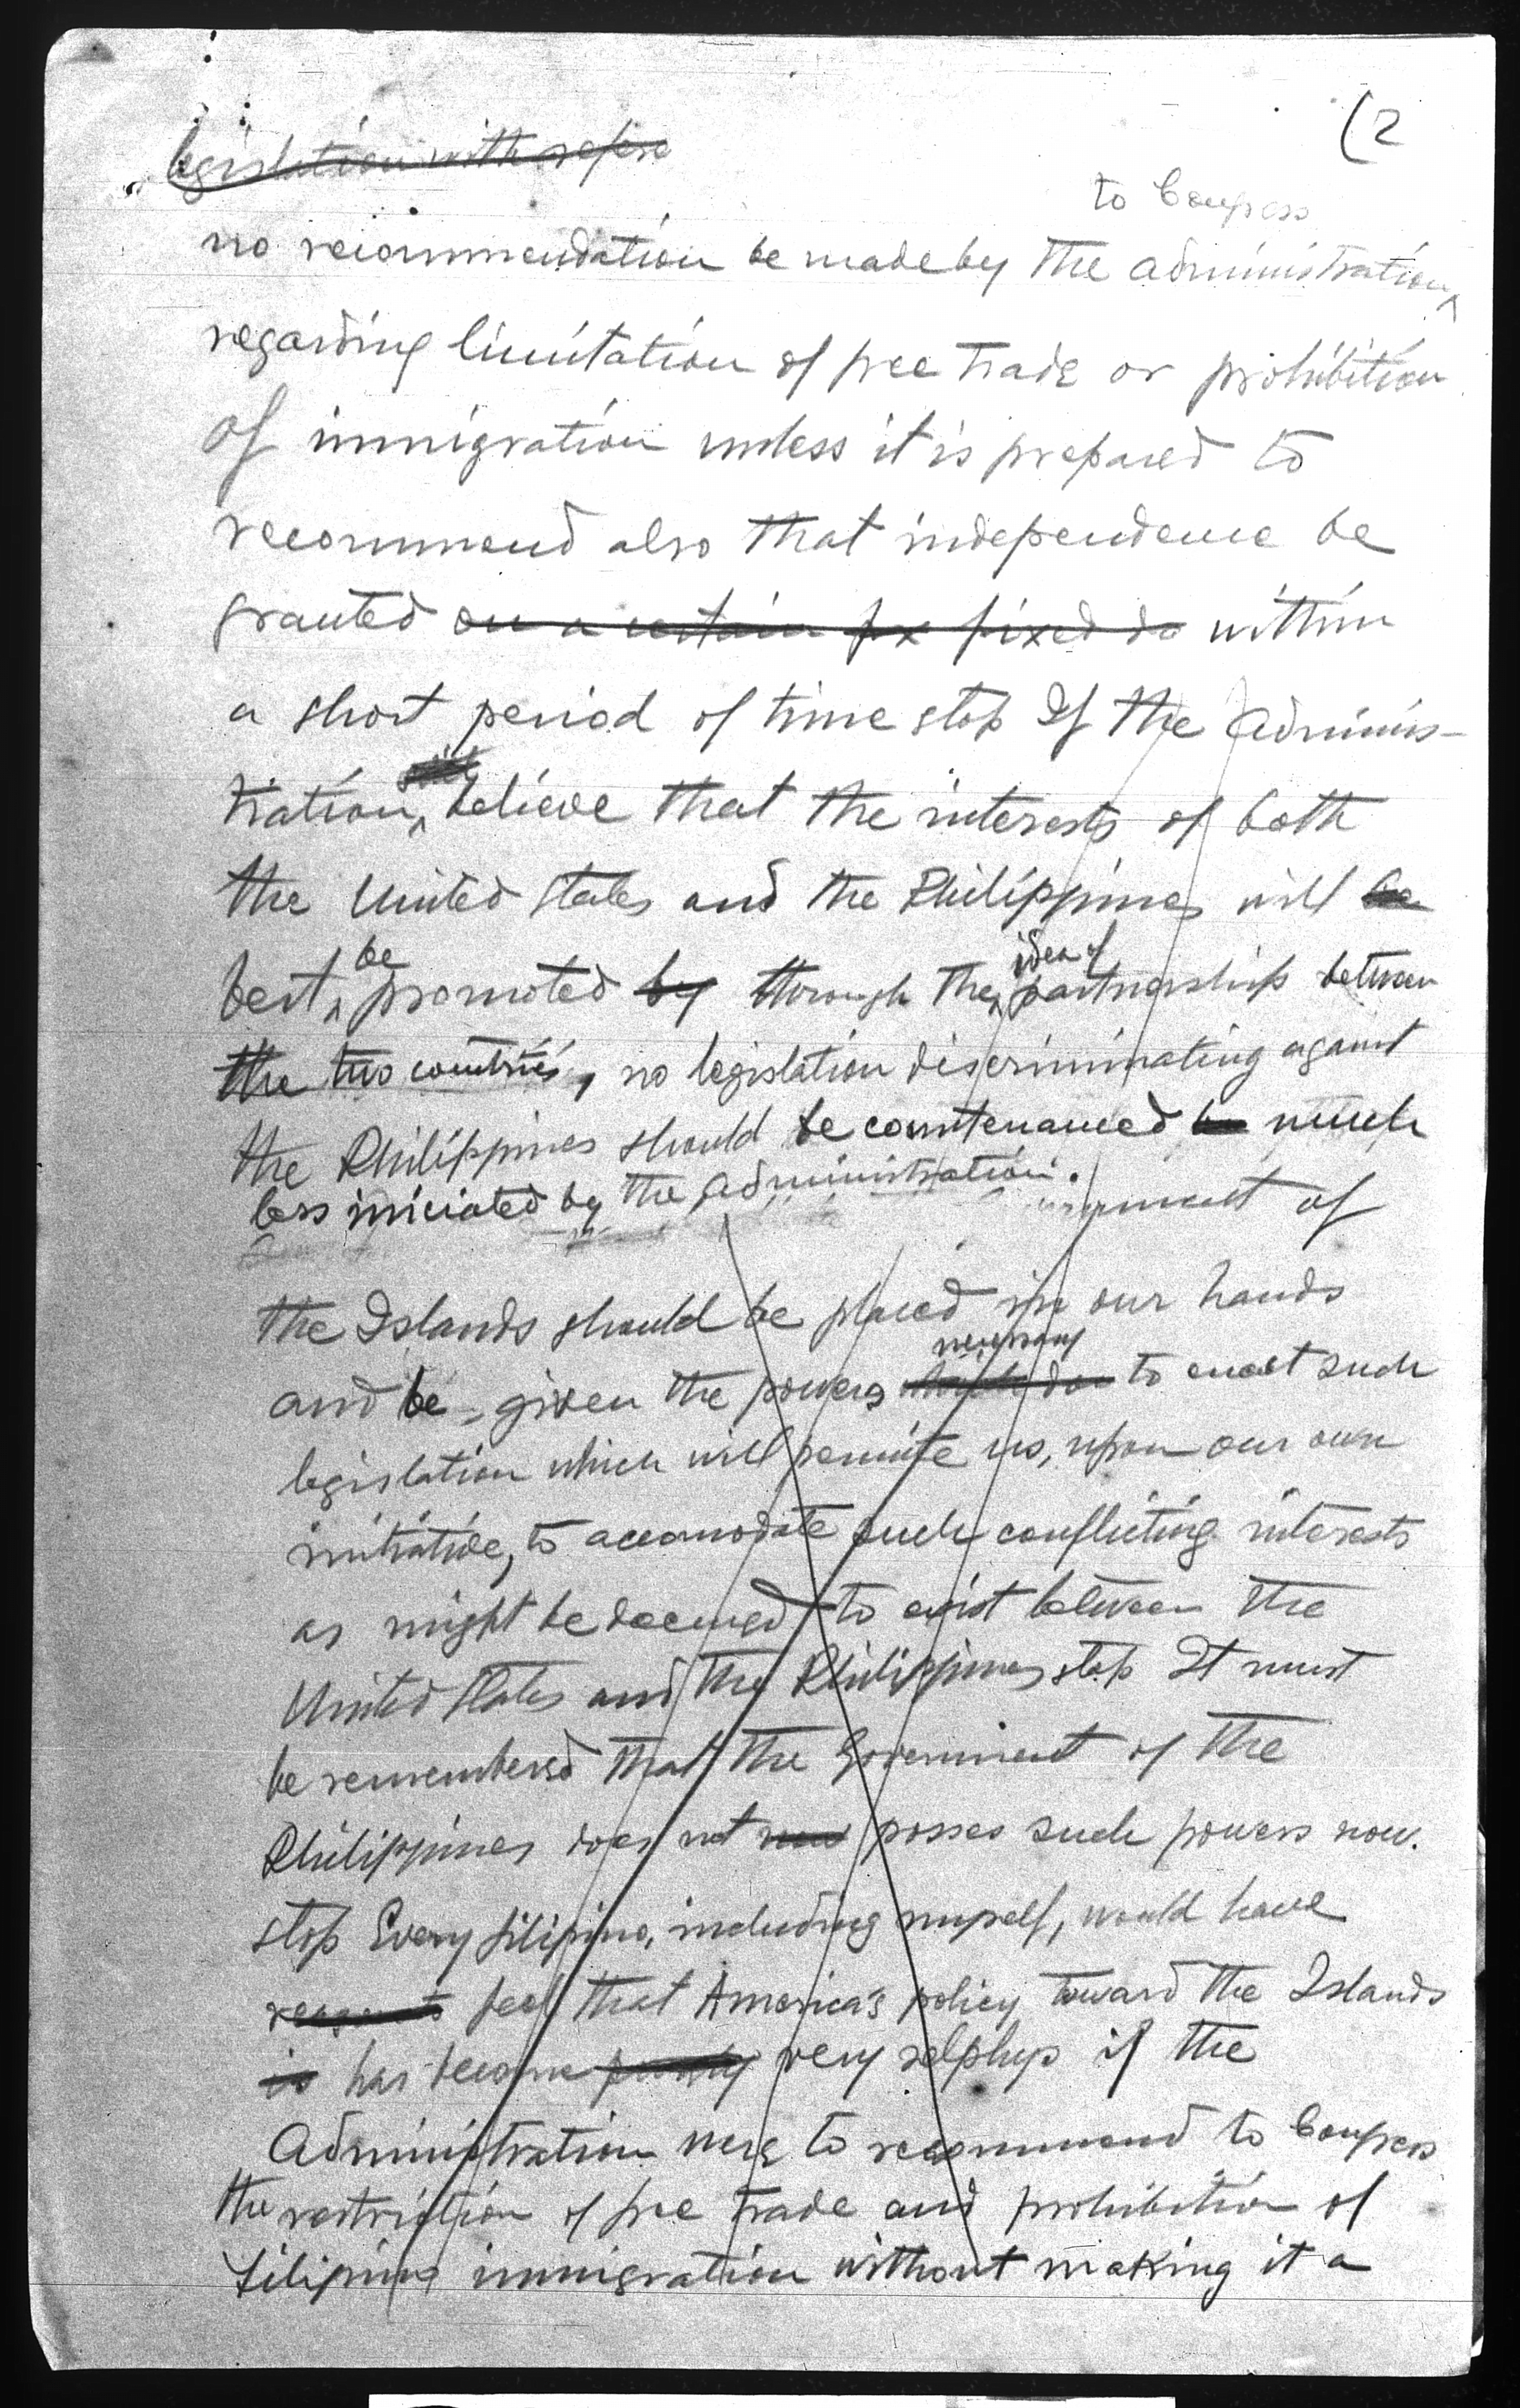 (2
legislation with refere
to Congress
no recommendation be made by the administration
regarding limitation of free trade or prohibition
of immigration unless it is prepared to
recommend also that independence be
granted on a certain fix fixed da within
a short period of time stop If the Adminis-
tration believe that the interests of both
the United States and the Philippines will be
be idea of
best promoted by through the partnership between
the two countries, no legislation discriminating against
the Philippines should be countenanced much
less iniciated by the administration.
of
the Islands should be placed in our hands
necessary
and be given the powers to enact such
legislation which will permite us, upon our own
initiative, to accomodate such conflicting interests
as might be deemed to exist between the
United States and the Philippines stop It must
be remembered that the Government of the
Philippines does not now posses such powers now.
stop Every filipino, including myself, would have
reason to feel that America's policy toward the Islands
is has become purely very selphys if the
Administration were to recommend to Congress
the restriction of free trade and prohibition of
filipino immigration without making it a